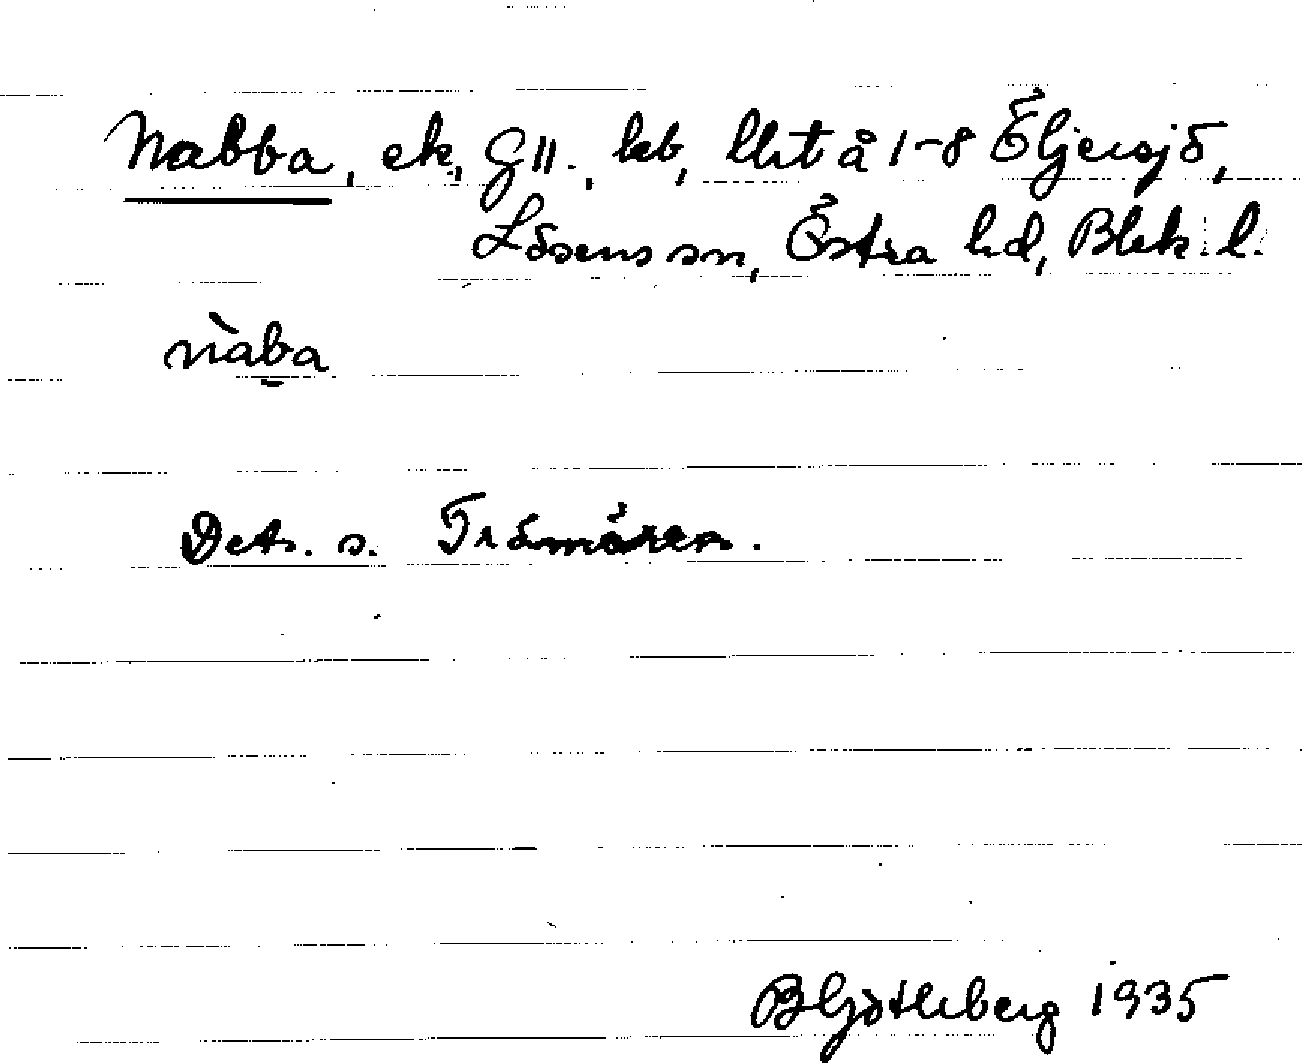 Nabba, ek, G11., kb, lht å 1-8 Öljersjö,
Lösens sn, Östra hd, Blek. l.
nàba
Dets. s. Trömören.
B Götlberg 1935